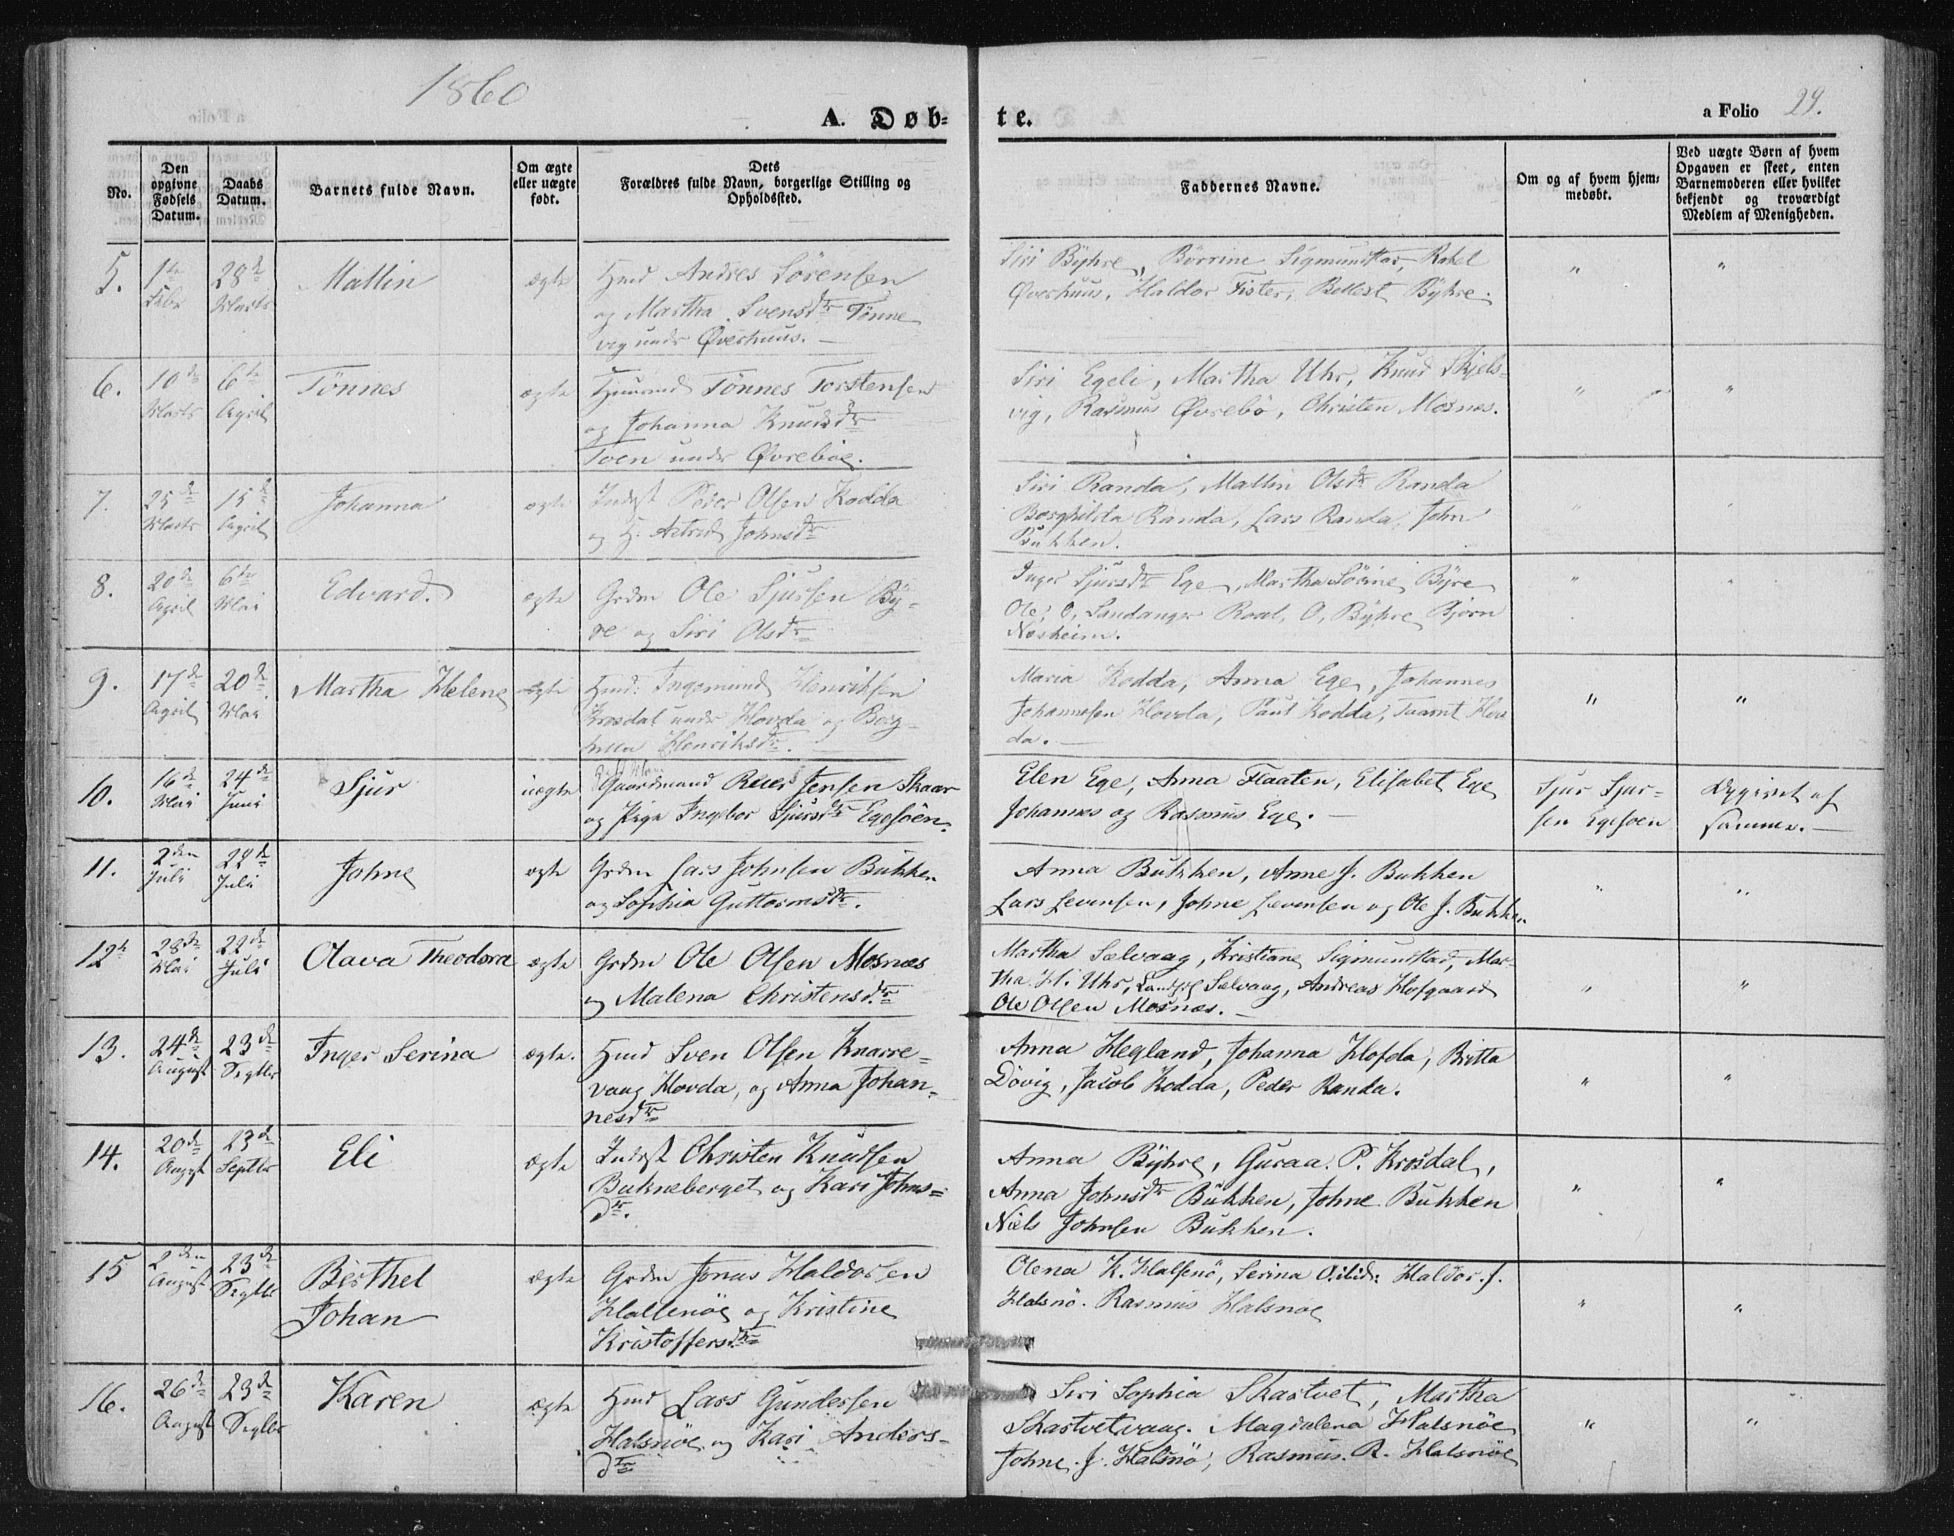 1860
A. Døb-
te.
a Folio 29.
No.
Den opgivne Fødsels Datum.
Daabs Datum.
Barnets fulde Navn.
Om ægte eller uægte født.
Dets
Forældres fulde Navn, borgerlige Stilling og
Opholdssted.
Faddernes Navne.
Om og af hvem hjem-
medøbt.
Ved uægte Børn af hvem
Opgaven er skeet, enten
Barnemoderen eller hvilket
bekjendt og troværdigt
Medlem af Menigheden.
5. 1ste Febr 28de Marts Mallin ægte Hmd Andres Sörensen
og Martha Svensdtr Tönne
vig under Øverhuus. —
Siri Byhre, Börrine Sigmunstad, Rakel
Øverhuus, Haldor Fister, Bottest Byhre.
" "
6. 10de Marts 6te April Tönnes ægte Huusmd Tönnes Torstensen
og Johanna Knudsdtr
Toen under Øvreböe.
Siri Egeli, Martha Uhr, Knud Skjels-
vig, Rasmus Øvrebö, Christen Mosnes.
" "
7. 25de Marts 15de April Johanna ægte Inderst Peder Olsen Kodda
og H. Astrid Johnsdtr
Siri Randa, Mallin Olsdtr Randa
Borghilda Randa, Lars Randa, John
Bukken.
" "
8. 20de April 6te Mai Edvard. ægte Grdm Ole Sjursen By-
re og Siri Olsdtr
Inger Sjursdtr Ege, Martha Sörine Byre
Ole O. Sandanger Roal O. Byhre Bjørn
Nesheim.
" "
9. 17de April 20de Mai Martha Helene ægte Hmd: Ingemund Henriksen
Krosdal under Hovda og Borg-
hilla Henriksdtr. —
Maria Kodda, Anna Ege, Johannes
Johannesen Hovda, Paul Kodda, Tvamt Hov
da. —
" "
10. 16de Mai 24de Juni Sjur uægte Gaardmand Reier Jensen Skaar
og Pige Ingebor Sjursdtr Egesöen.
Elen Ege, Anna Flaaten, Elisabet Ege
Johannes og Rasmus Ege. —
Sjur Sjur-
sen Egesoen
Opgivet af
samme. —
11. 2den Juli 22de Juli Johne ægte Grdm Lars Johnsen Bukken
og Sophia Guttormsdtr.
Anna Bukken, Anne J. Bukken
Lars Levensen, Johne Levensen og Ole J. Bukken
" "
12 28de Mai 22de Juli Olava Theodora ægte Grdm Ole Olsen Mosnæs
og Malena Christensdtr
Martha Selvaag, Kristiane Sigmunstad, Mar-
tha H. Uhr, Selvaag, Andreas Hofgaard
Ole Olsen Mosnæs. —
" "
13. 24de August 23de Septbr Inger Serina ægte. Hmd Sven Olsen Knarre-
vaag Hovda, og Anna Johan-
nesdtr
Anna Hegland, Johanna Hofda, Britta
Dövig, Jacob Kodda, Peder Randa.
" "
14. 20de August 23de Septbr Eli ægte Inderst Christen Knudsen
Bukneberget og Kari Johns-
dtr.
Anna Byhre, Guraa. P. Krosdal,
Anna Johnsdtr Bukken, Johne Bukken
Niels Johnsen Bukken.
" "
15 2den August 23de Septbr Berthel
Johan ægte Grdm Jonas Haldorsen
Halsenöe og Kristine
Kristoffersdtr
Olena K. Halsenö, Serina O. ibid: Haldor. J.
Halsnö. Rasmus Halsnöe
" "
16. 26de August 23de Septbr Karen ægte Hmd Lars Gundersen
Halsnöe og Kari Anders-
dtr
Siri Sophia Skartvet, Martha
Skartvetvaag. Magdalena Halsnöe
Johne. J. Halsnö, Rasmus. R. Halsnöe
" "